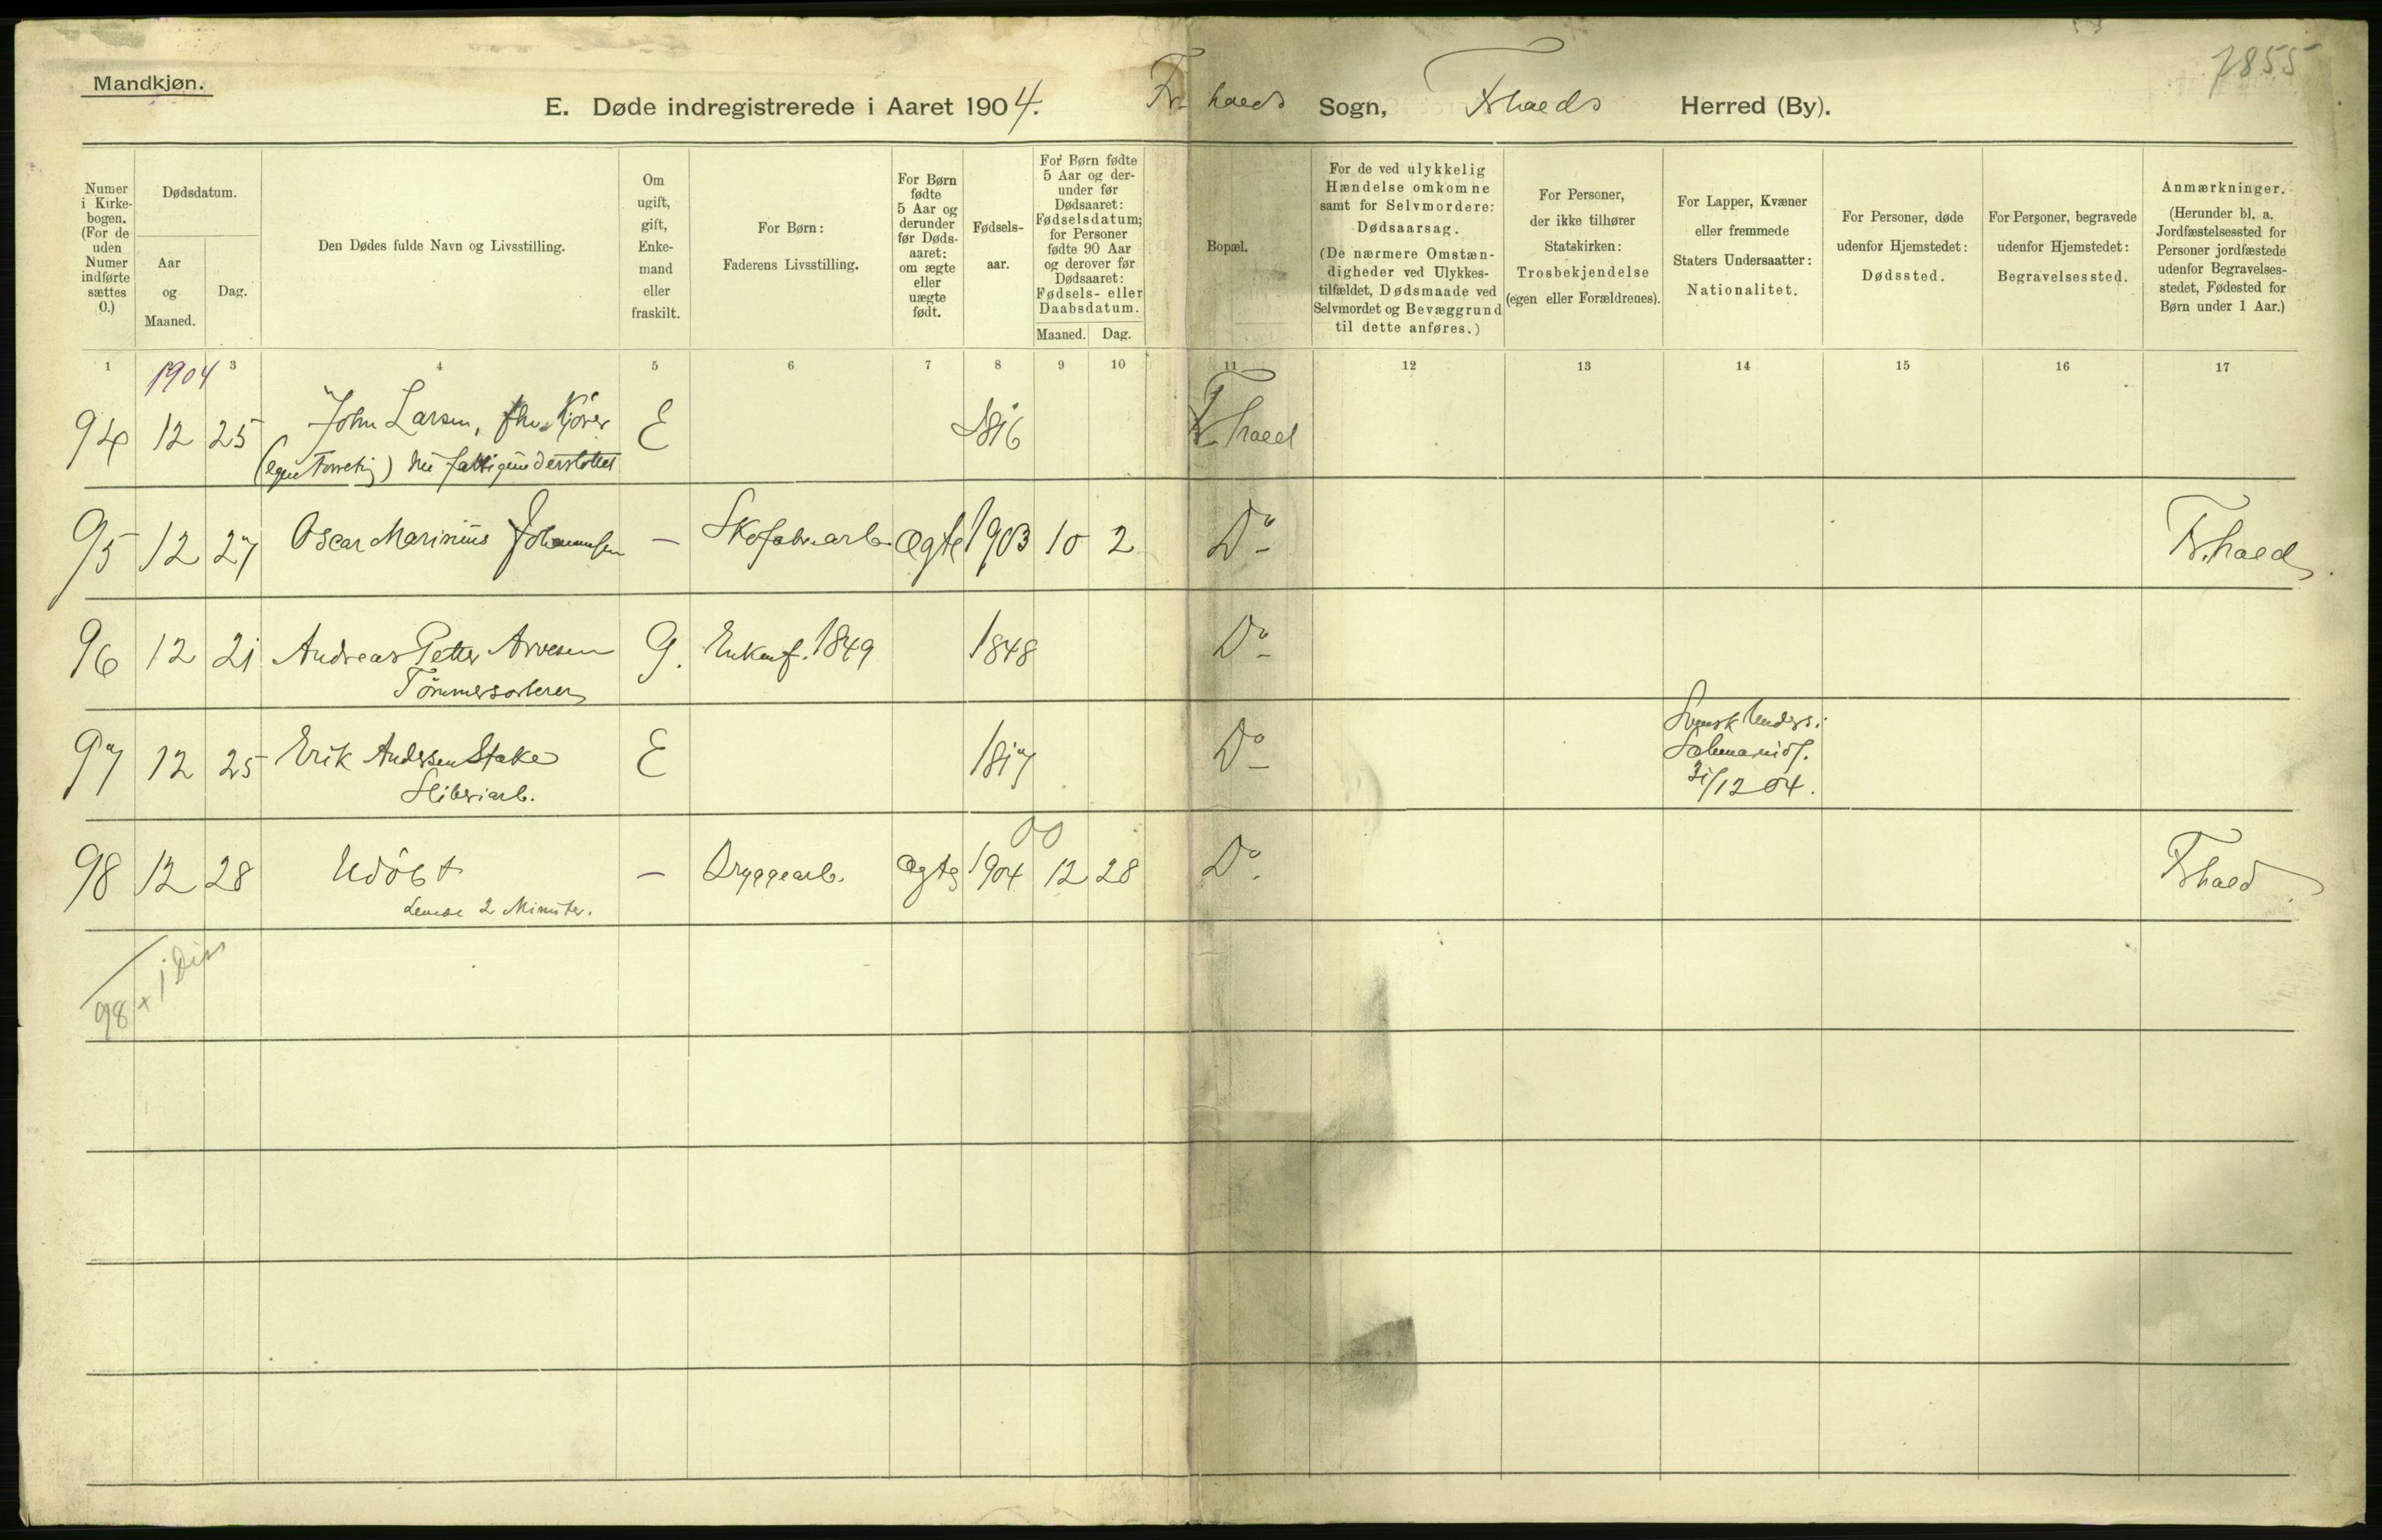 Mandkjøn.
7855
E. Døde indregistrerede i Aaret 1904. Fr. halds Sogn, Frhalds Herred (By).
Numer
i Kirke-
bogen.
(For de
uden
Numer
indførte
sættes
0.)
Dødsdatum.
Aar
og
Maaned.
Dag.
Den Dødes fulde Navn og Livsstilling.
Om
ugift,
gift,
Enke-
mand
eller
fraskilt.
For Børn:
Faderens Livsstilling.
For Børn
fødte
5 Aar og
derunder
før Døds-
aaret:
om ægte
eller
uægte
født.
Fødsels-
aar.
For Børn fødte
5 Aar og der-
under før
Dødsaaret:
Fødselsdatum;
for Personer
fødte 90 Aar
og derover før
Dødsaaret:
Fødsels- eller
Daabsdatum.
Maaned. Dag.
Bopæl.
For de ved ulykkelig
Hændelse omkomne
samt for Selvmordere:
Dødsaarsag.
(De nærmere Omstæn-
digheder ved Ulykkes-
tilfældet, Dødsmaade ved
Selvmordet og Bevæggrund
til dette anføres.)
For Personer,
der ikke tilhører
Statskirken:
Trosbekjendelse
(egen eller Forældrenes).
For Lapper, Kvæner
eller fremmede
Staters Undersaatter:
Nationalitet.
For Personer, døde
udenfor Hjemstedet:
Dødssted.
For Personer, begravede
udenfor Hjemstedet:
Begravelsessted.
Anmærkninger.
(Herunder bl. a.
Jordfæstelsessted for
Personer jordfæstede
udenfor Begravelses-
stedet, Fødested for
Børn under 1 Aar.)
1 3 4 5 6 7 8 9 10 11 12 13 14 15 16 17
1904
94 12 25 John Larsen, fhv. Kjører E 1816 Fr. hald
(egen Forretn.) nu fattigunderstøttet
95 12 27 Oscar Marinius Johannsen — Skofabrarb. Ægte 1903 10 2 Do Fr. hald
96 12 21 Andreas Petter Arvesen G. Enke f. 1849 1848 Do
Tömmersorterer
97 12 25 Erik Andersen Stake E 1817 Do Svensk Unders:
Sliberiarb.
31/12 04.
00
98 12 28 Udöbt — Bryggearb. Ægte 1904 12 28 Do Frhald
Levede 2 Minuter.
98 +